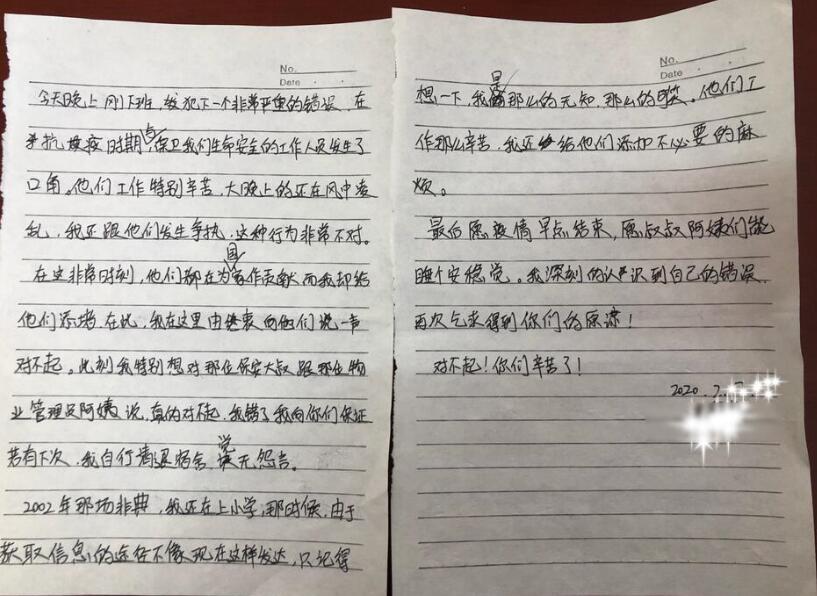 No.
Date
今天晚上刚下班 就犯下一个非常严重的错误,在
抗疫时期与保卫我们生命安全的工作人员发生了
口角。他们工作特别辛苦,大晚上的还在风中凌
乱,我还跟他们发生争执,这种行为非常不对。
在这非常时刻,他们都在为国作贡献而我却给
他们添堵 在此,我在这里由衷向他们说一声
对不起。此刻我特别想对那位保安大叔跟那位物
业管理员阿姨说,真的对不起,我错了我向你们保证
若有下次,我自行清退宿舍 毫无怨言。
2002年那场非典,我还在上小学,那时候,由于
获取信息的途径不像现在这样发达,只记得
No.
Date
想一下,我是那么的无知,那么的可笑。他们工
作那么辛苦,我还给他们添加不必要的麻
烦。
最后愿疫情早点结束,愿叔叔阿姨们能
睡个安稳觉。我深刻的认识到自己的错误
再次乞求得到你们的原谅!
对不起!你们辛苦了!
2020.2.